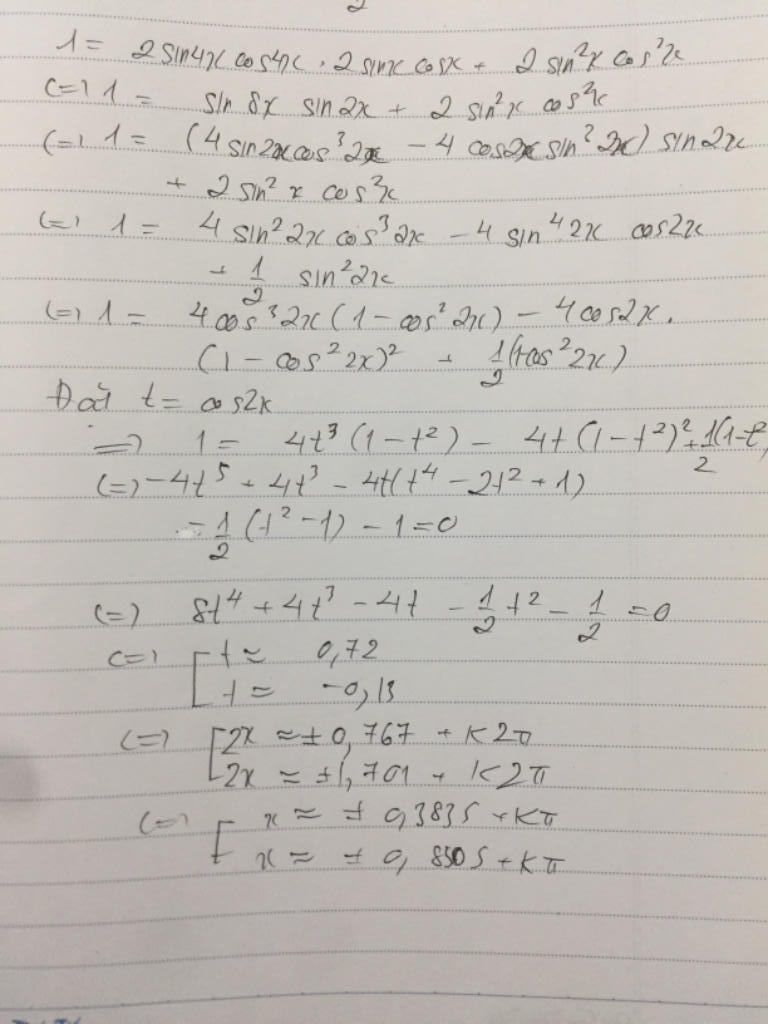 2
1 = 2 sin4x cos4x . 2 sinx cosx + 2 sin²x cos²x
(=) 1 = sin 8x sin 2x + 2 sin²x cos²x
(=) 1 = (4 sin2x cos³2x - 4 cos2x sin³2x) sin2x
+ 2 sin²x cos²x
(=) 1 = 4 sin²2x cos³2x - 4 sin⁴2x cos2x
+ 1/2 sin²2x
(=) 1 = 4cos³2x (1 - cos²2x) - 4cos2x.
(1 - cos²2x)² + 1/2(1-cos²2x)
Đặt t = cos2x
=> 1 = 4t³(1-t²) - 4t(1-t²)² + 1/2(1-t²)
(=) -4t⁵ + 4t³ - 4t(t⁴ - 2t² + 1)
- 1/2 (t² - 1) - 1 = 0
(=) 8t⁴ + 4t³ - 4t - 1/2 t² - 1/2 = 0
(=) [ t ≈ 0,72
t ≈ -0,13
(=) [ 2x ≈ ± 0,767 + k2π
2x ≈ ±1,701 + k2π
(=) [ x ≈ ± 0,3835 + kπ
x ≈ ± 0,8505 + kπ